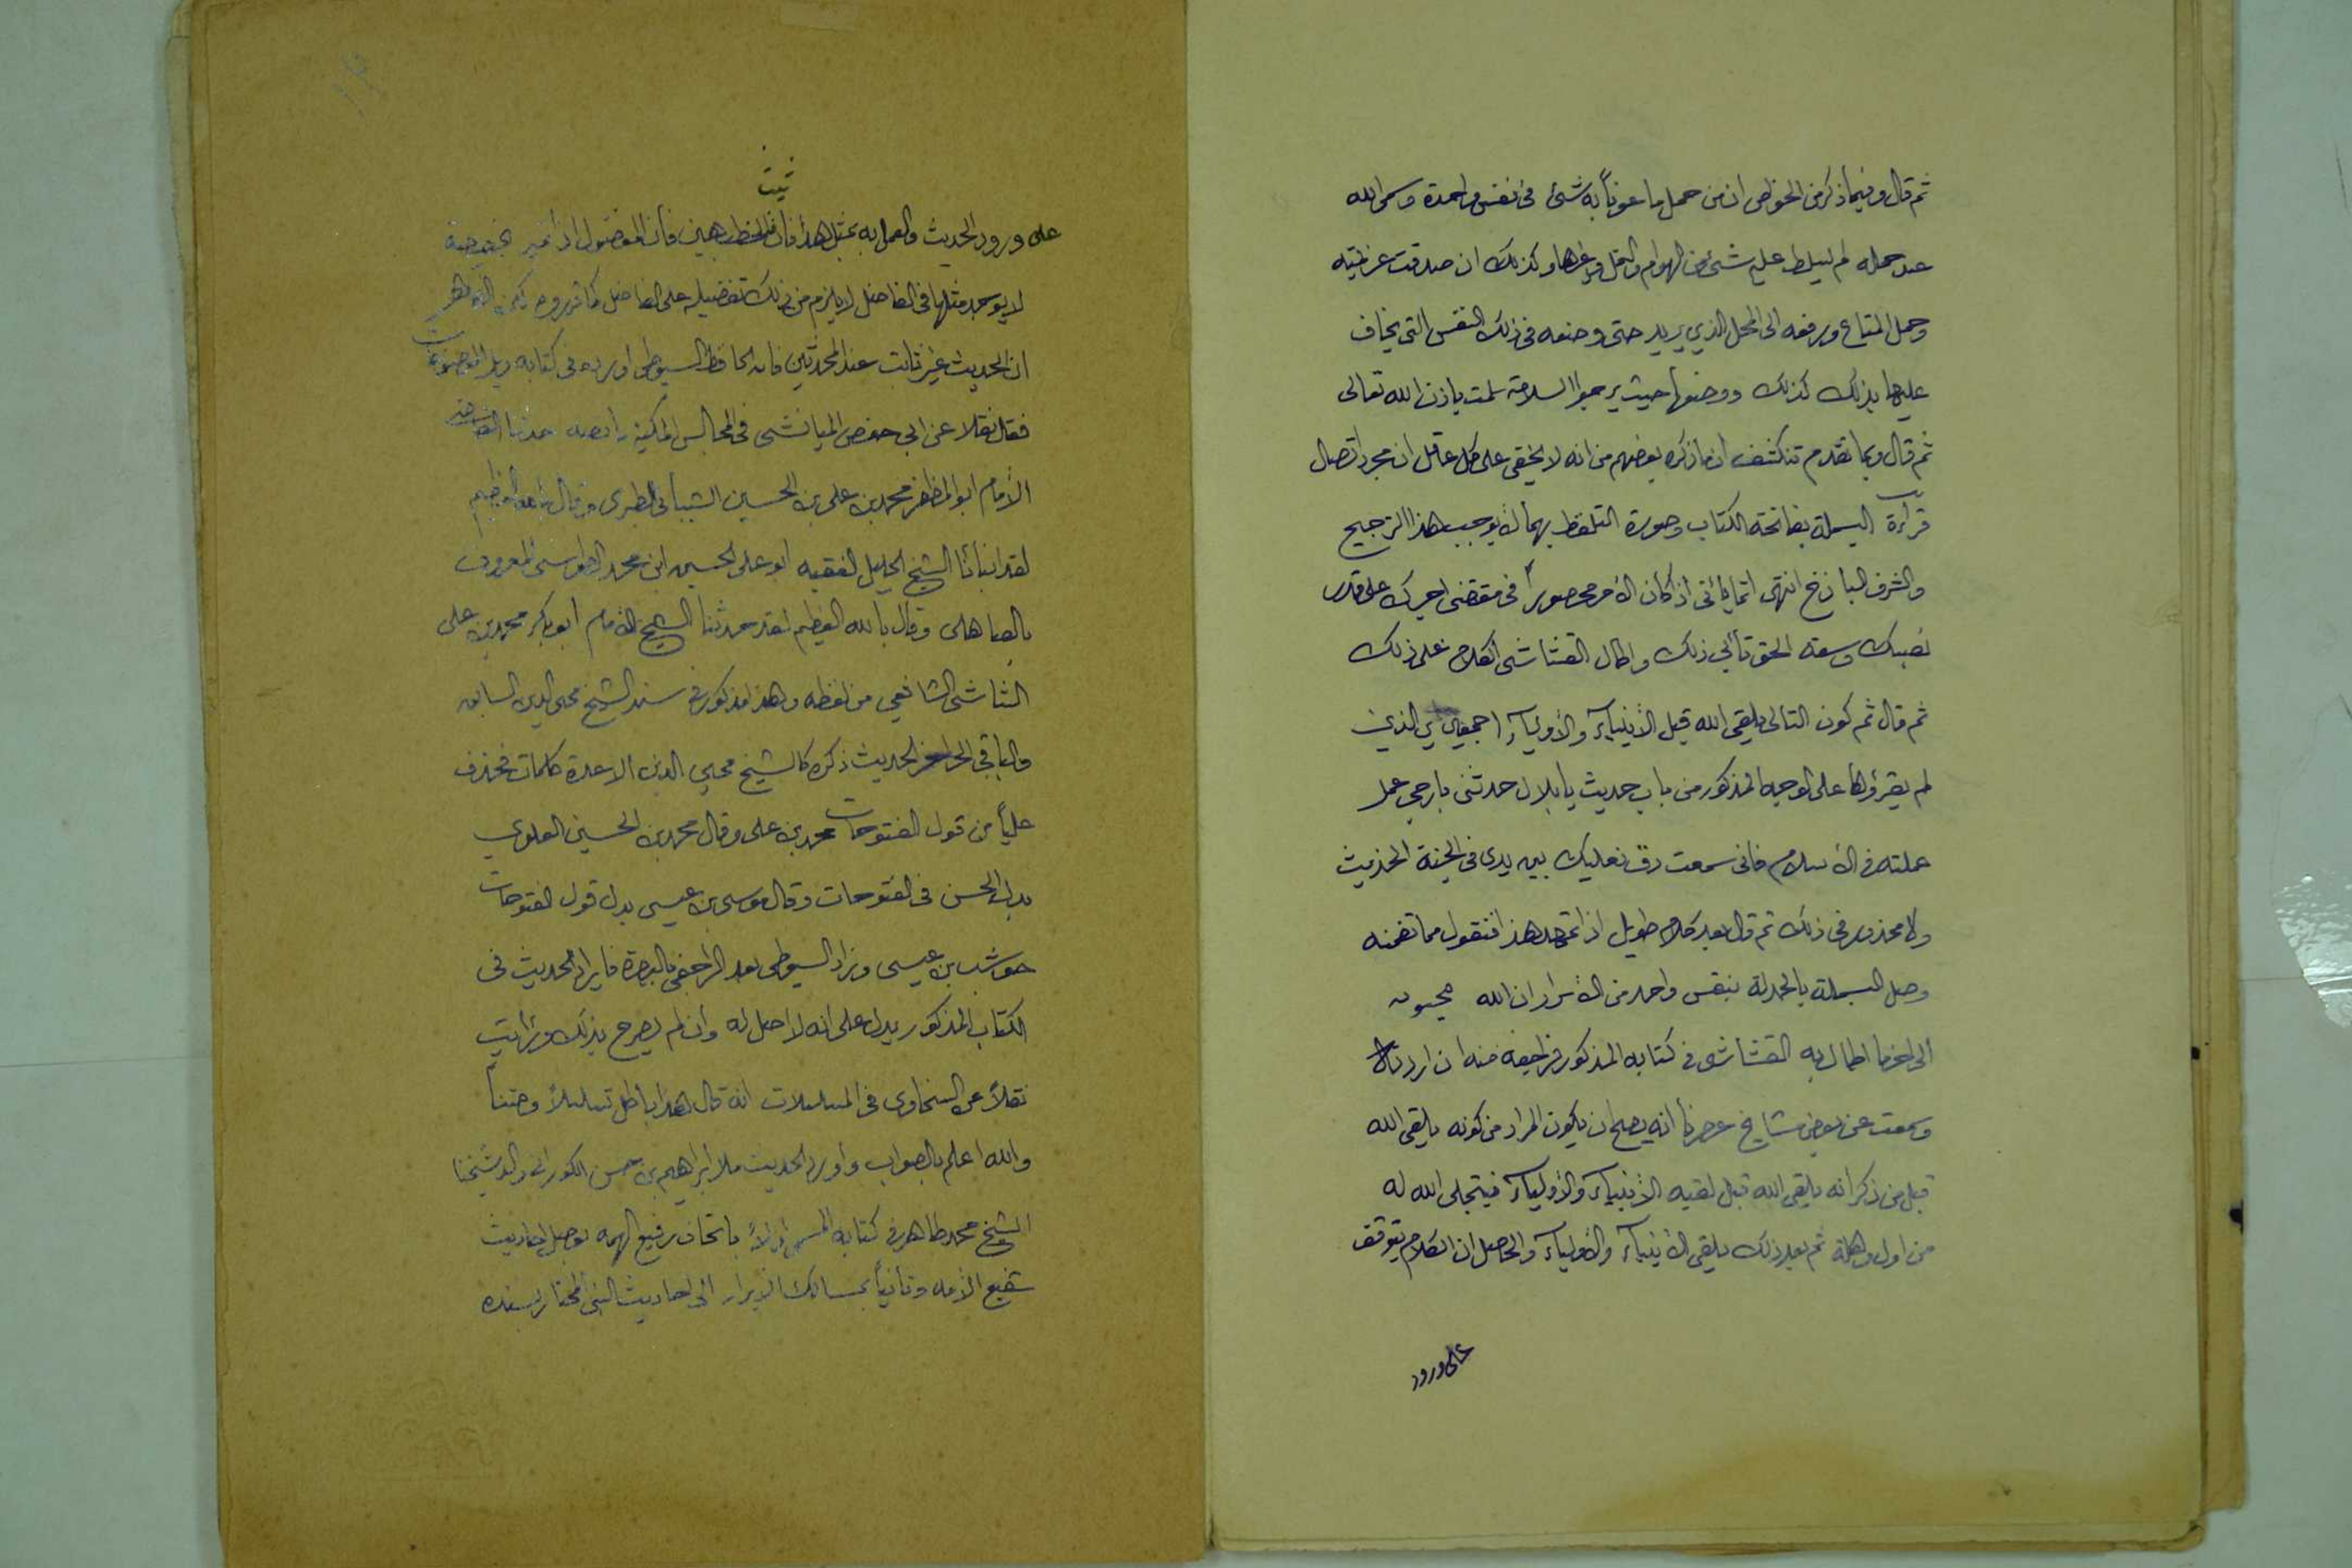 ثم قال وفيما ذكر من الخواص ان من حمل ما عوناً به شئ في نفس واحدة وسمى الله
عند حمله لم يسلط عليه شئ من الهوام والنمل وغيرها وكذلك ان صدقت عزيمته
وحمل المتاع ورفعه الى المحل الذي يريد حتى وضعه في ذلك النفس التى يخاف
عليها بذلك كذلك ووضعها حيث يرجوا السلامة سلمت باذن الله تعالى
ثم قال وبما تقدم تنكشف ان ما ذكره بعضهم من انه لا يخفى على كل عاقل ان مجرد اتصال
قرآءة البسملة بفاتحة الكتاب وصورة التلفظ بهما لا يوجب هذا الترجيح
والشرف الباذخ انتهى انما يأتى اذ كان الأمر محصوراً في مقتضى اجرك على قدر
نصبك وسعة الحق تأبى ذلك واطال القشاشى الكلام على ذلك
ثم قال ثم كون التالى يلقى الله قبل الأنبيآء والأوليآء اجمعين الذين
لم يقرؤها على الوجه المذكور من باب حديث يا بلال حدثنى بارجى عمل
عملته في الأسلام فانى سمعت دق نعليك بين يدى في الجنة الحديث
ولا محذور في ذلك ثم قال بعد كلام طويل اذا تمهد هذا فنقول مما تضمنه
وصل البسملة بالحمدلة بنفس واحد من الأسرار ان الله
الى اخر ما اطال به القشاشى في كتابه المذكور فراجعه منه ان اردته
وسمعت عن بعض مشايخ عصرنا انه يصح ان يكون المراد من كونه يلقى الله
قبل من ذكر انه يلقى الله قبل لقيه الأنبيآء والأوليآء فيتجلى الله له
من اول وهلة ثم بعد ذلك يلقى الأنبيآء والأوليآء والحاصل ان الكلام يتوقف
على ورود
ثبت
على ورود الحديث والعمل به بمثل هذا فان الخطب هين فأن المفضول اذا خير بخصوصية
لا يوجد مثلها في الفاضل لا يلزم من ذلك تفضيله على الفاضل كما قرروه لكن الظاهر
ان الحديث غير ثابت عند المحدثين فان الحافظ السيوطى اورده في كتابه ذيل الموضوعات
فقال نقلا عن ابي حفص الميانشى في المجالس المكية ما نصه حدثنا القاضى
الأمام ابو المظفر محمد بن على بن الحسين الشيبانى الطبرى وقال بالله العظيم
لقد انبأنا الشيخ الجليل الفقيه ابو على الحسين ابن محمد الطوسى المعروف
بالصاهلى وقال بالله العظيم لقد حدثنا الشيخ الأمام ابو بكر محمد بن على
الشاشى الشافعي من لفظه وهذا مذكور في سند الشيخ محى الدين السابق
والباقي الى اخر الحديث ذكره كالشيخ محيي الدين الا عدة كلمات فحذف
علياً من قول الفتوحات محمد بن على وقال محمد بن الحسين العلوي
بدل الحسن في الفتوحات وقال موسى بن عيسى بدل قول الفتوحات
حوشب بن عيسى وزاد السيوطى بعد الراجفى بالبصرة فايراد الحديث في
الكتاب المذكور يدل على انه لا اصل له وأن لم يصرح بذلك ورأيت
نقلاً عن السخاوى في المسلسلات انه قال هذا باطل تسلسلاً ومتناً
والله اعلم بالصواب وأورد الحديث ملا ابراهيم بن حسن الكورانى والد شيخنا
الشيخ محمد طاهر في كتابه المسمى اولاً باتحاف رفيع الهمه بوصل احاديث
شفيع الأمه وثانياً بمسالك الابرار الى احاديث النبى المختار بسنده